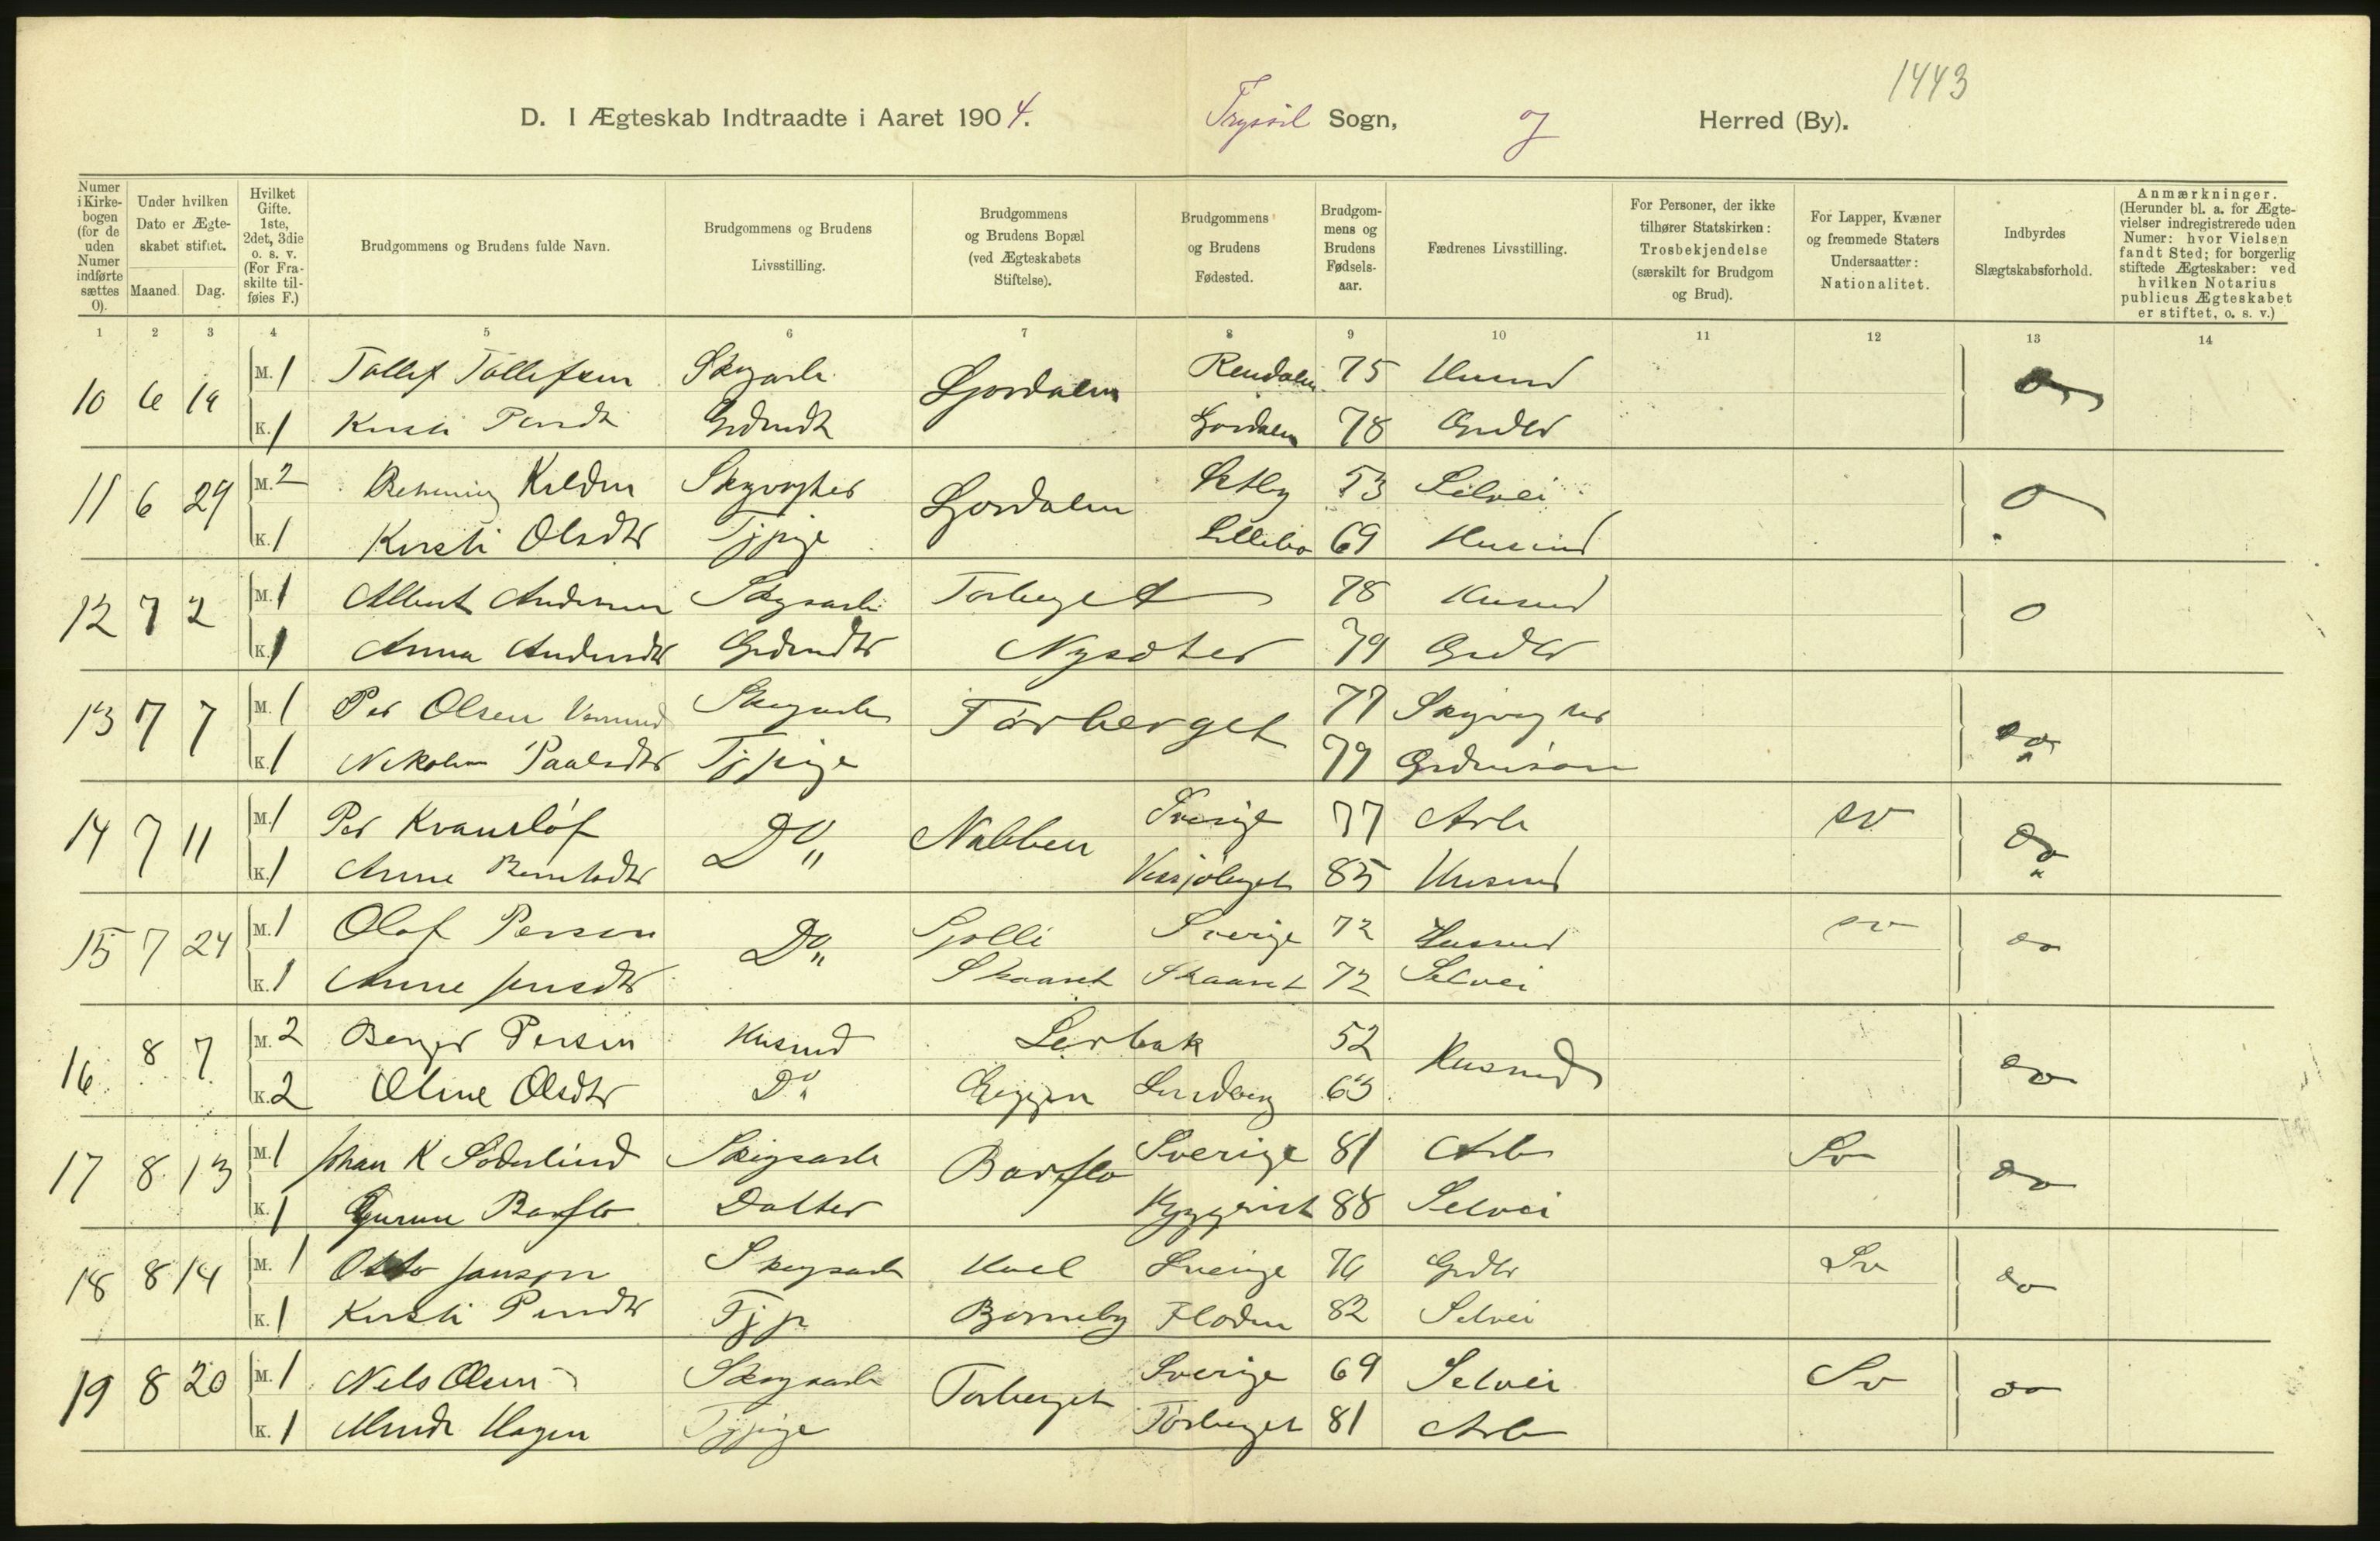 1443
D. I Ægteskab Indtraadte i Aaret 1904. Trysil Sogn, og Herred (By).
Numer i Kirkebogen (for de uden Numer indførte sættes 0).
Under hvilken Dato er Ægteskabet stiftet.
Maaned. Dag.
Hvilket Gifte. 1ste, 2det, 3die o. s. v. (For Fraskilte tilføies F.)
Brudgommens og Brudens fulde Navn.
Brudgommens og Brudens Livsstilling.
Brudgommens og Brudens Bopæl (ved Ægteskabets Stiftelse).
Brudgommens og Brudens Fødested.
Brudgommens og Brudens Fødselsaar.
Fædrenes Livsstilling.
For Personer, der ikke tilhører Statskirken: Trosbekjendelse (særskilt for Brudgom og Brud).
For Lapper, Kvæner og fremmede Staters Undersaatter: Nationalitet.
Indbyrdes Slægtskabsforhold.
Anmærkninger. (Herunder bl. a. for Ægtevielser indregistrerede uden Numer: hvor Vielsen fandt Sted; for borgerlig stiftede Ægteskaber: ved hvilken Notarius publicus Ægteskabet er stiftet, o. s. v.)
1 2 3 4 5 6 7 8 9 10 11 12 13 14
10 6 19 M. 1 Tollef Tollefsen Skogarb Ljordalen Rendalen 75 Husmd
K. 1 Kirsti Persdt Grdmdt Ljordalen 78 Grdbr
11 6 29 M. 2 Kilden Skogvogter Ljordalen 53 Selvei 0
K. 1 Kirsti Olsdtr Tjpige Lillebo 69 Husmd
12 7 2 M. 1 Albert Andersen Skogarb Torberget 78 Husmd 0
K. 1 Anna Andersdtr Grdmdtr Nysæter 79 Grdbr
13 7 7 M. 1 Per Olsen Skogarb Torberget 77 Skogvogter do
K. 1 Nikoline Paalsdtr Tjpige 79 Grdmand
14 7 11 M. 1 Per Do Nabben Sverige 77 Arb sv do
K. 1 Anne 85 Husmd
15 7 24 M. 1 Olof Persen Do Sjølli Sverige 72 Husmd sv do
K. 1 Anne Jensdtr Skaaret Skaaret 72 Selvei
16 8 7 M. 2 Berger Persen Husmd Lerbak 52 Husmd do
K. 2 Oline Olsdtr Do Eggen 63
17 8 13 M. 1 Johan K Söderlind Skogsarb Barflo Sverige 81 Arb Sv do
K. 1 Gurine Barflo Datter 88 Selvei
18 8 14 M. 1 Otto Janson Skogsarb Sverige 76 Grdbr Sv do
K. 1 Kirsti Persdtr Tjp Børneby Floden 82 Selvei
19 8 20 M. 1 Nils Olsen Skogsarb Torberget Sverige 69 Selvei Sv do
K. 1 Hagen Tjpige Torberget 81 Arb